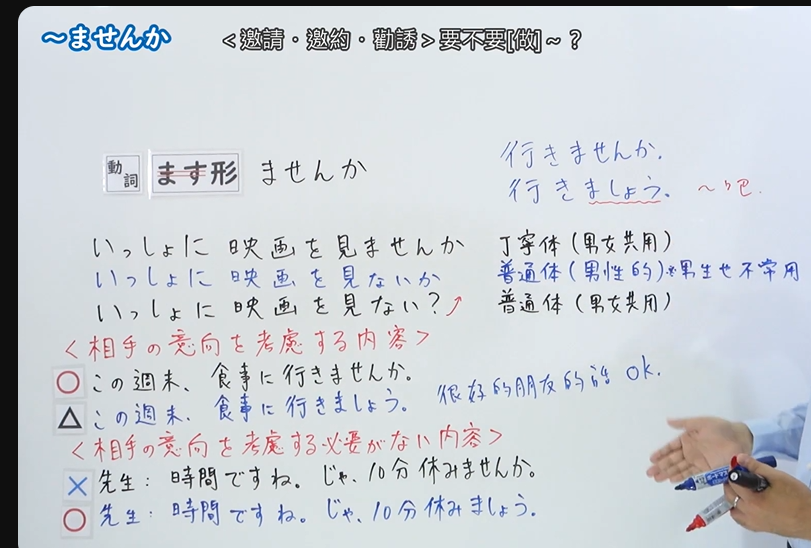 〜ませんか
<邀請・邀約・勸誘>要不要[做]〜？
動詞 ます形 ませんか
行きませんか.
行きましょう。 〜吧.
いっしょに 映画を見ませんか 丁寧体(男女共用)
いっしょに 映画を見ないか 普通体(男性的)※男生也不常用
いっしょに 映画を見ない？ 普通体(男女共用)
<相手の意向を考慮する内容>
○ この週末、食事に行きませんか。
△ この週末、食事に行きましょう。 很好的朋友的話 ok.
<相手の意向を考慮する必要がない内容>
× 先生：時間ですね。じゃ、10分休みませんか。
○ 先生：時間ですね。じゃ、10分休みましょう.